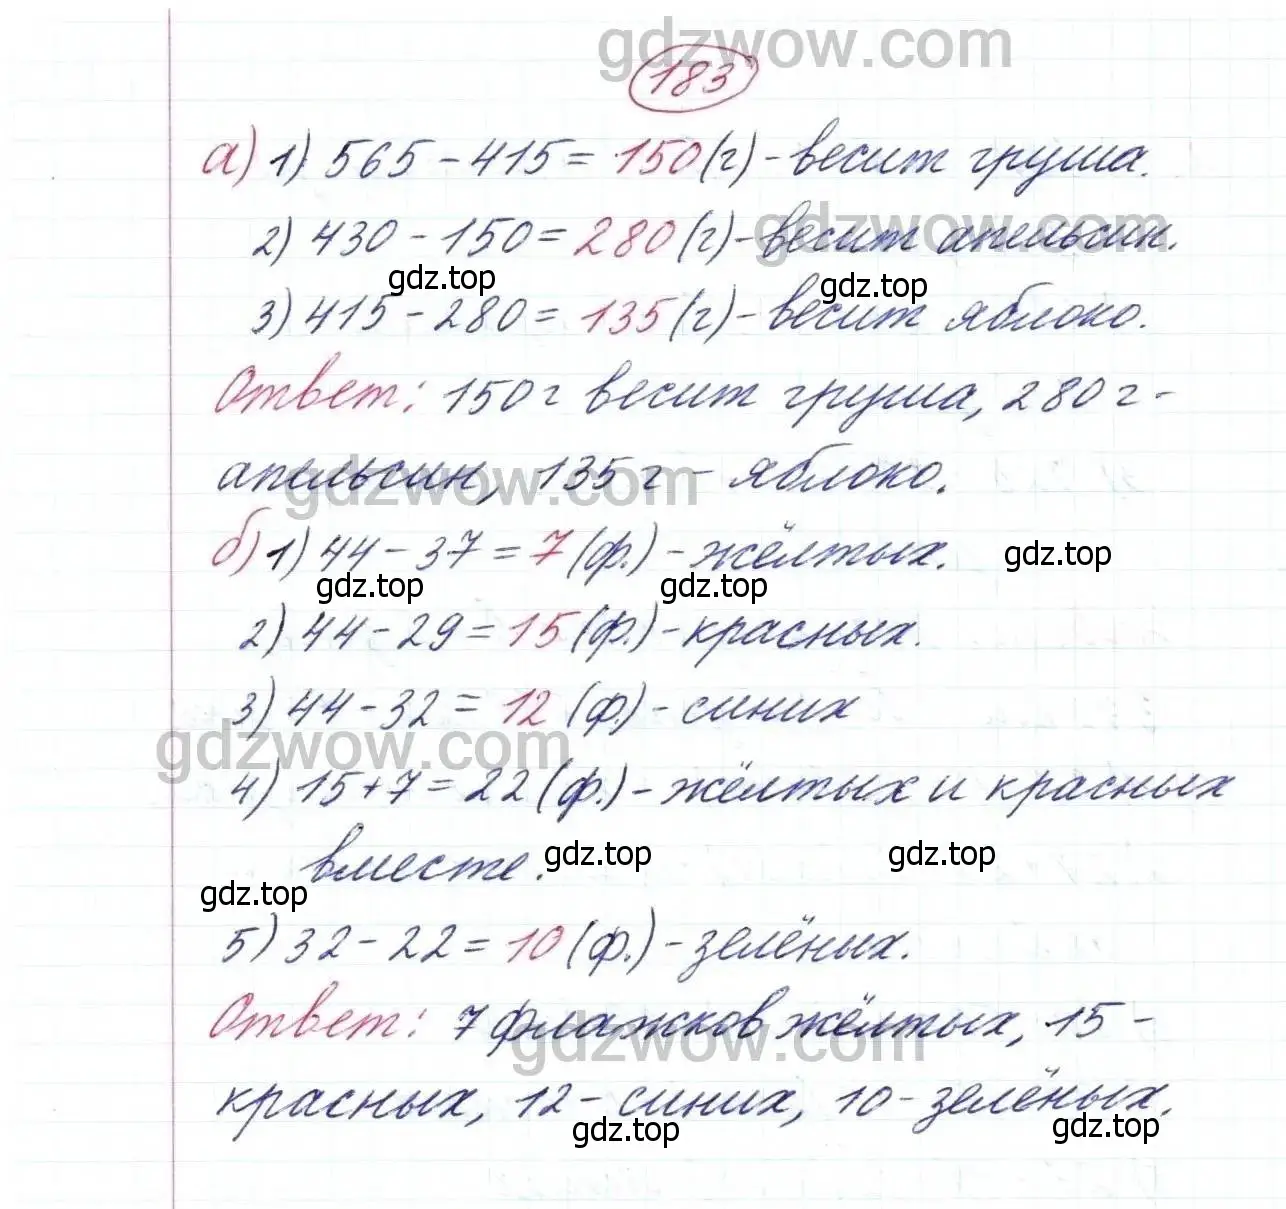 gdzwow.com
183
а) 1) 565 - 415 = 150 (г) - весит груша.
gdzwow.com
2) 430 - 150 = 280 (г) - весит апельсин.
gdz.top gdz.top
3) 415 - 280 = 135 (г) - весит яблоко.
Ответ: 150 г весит груша, 280 г -
апельсин, 135 г - яблоко.
gdzwow.com
б) 1) 44 - 37 = 7 (ф.) - жёлтых.
gdz.top
gdz.top gdz.top
2) 44 - 29 = 15 (ф.) - красных.
3) 44 - 32 = 12 (ф.) - синих
gdzwow.com
4) 15 + 7 = 22 (ф.) - жёлтых и красных
вместе.
gdz.top gdz.top
gdz.top
5) 32 - 22 = 10 (ф.) - зелёных.
Ответ: 7 флажков жёлтых, 15 -
gdzwow.com
красных, 12 - синих, 10 - зелёных.
gdz.top gdz.top